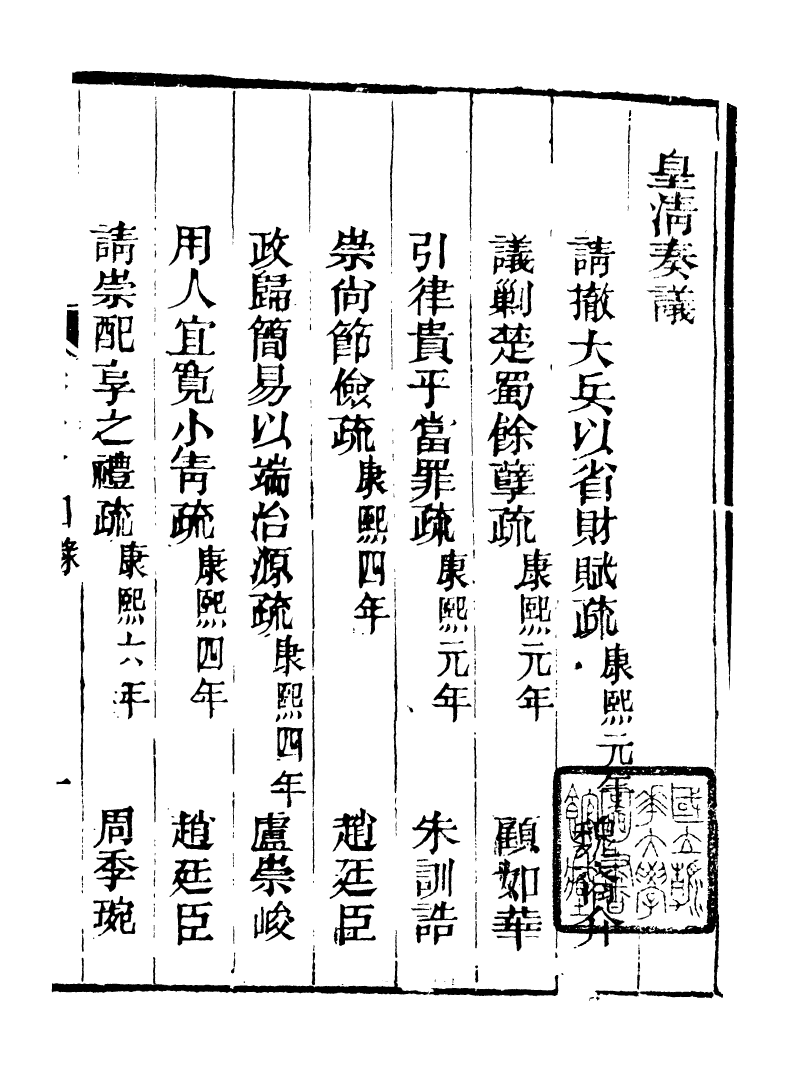 皇淸奏議
請撤大兵以省財賦疏 康熙元年 魏裔介
議剿楚蜀餘孽疏 康熙元年 顧如華
引律貴平當罪疏 康熙元年 朱訓誥
崇尙節儉疏 康熙四年 趙廷臣
政歸簡易以端治源疏 康熙四年 盧崇峻
用人宜寬小眚疏 康熙四年 趙廷臣
請崇配享之禮疏 康熙六年 周季琬
目錄 一
國立
大學